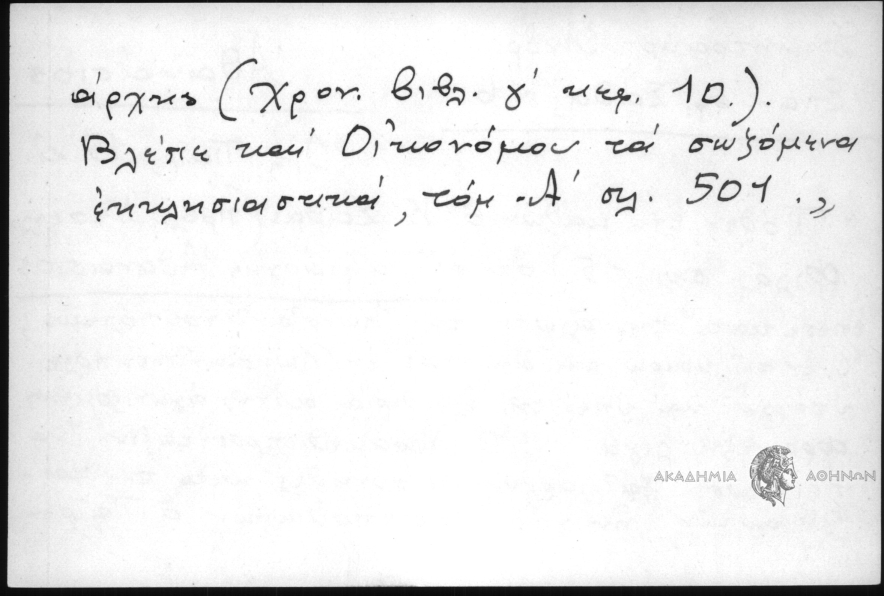 άρχης (Χρον. βιβλ. γ' κεφ. 10.).
Βλέπε καί Οἰκονόμου τά σωζόμενα
ἐκκλησιαστικά, τόμ. Α' σελ. 501.»
ΑΚΑΔΗΜΙΑ ΑΘΗΝΩΝ